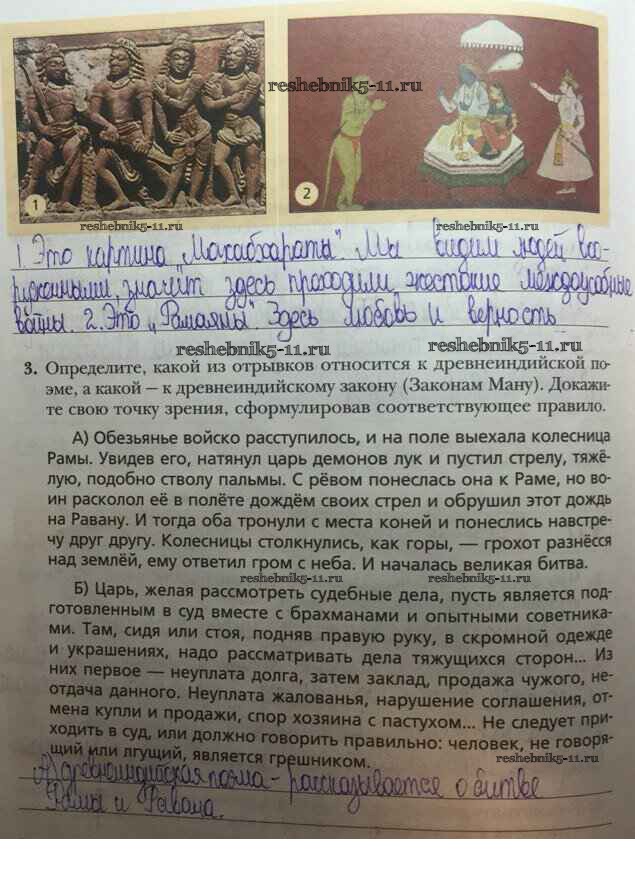 reshebnik5-11.ru
1
2
reshebnik5-11.ru reshebnik5-11.ru
1. Это картина "Махабхараты". Мы видим людей воо-
руженными, значит здесь проходили жестокие междоусобные
войны. 2. Это "Рамаяны". Здесь любовь и верность
reshebnik5-11.ru reshebnik5-11.ru
3. Определите, какой из отрывков относится к древнеиндийской по-
эме, а какой — к древнеиндийскому закону (Законам Ману). Докажи-
те свою точку зрения, сформулировав соответствующее правило.
А) Обезьянье войско расступилось, и на поле выехала колесница
Рамы. Увидев его, натянул царь демонов лук и пустил стрелу, тяжё-
лую, подобно стволу пальмы. С рёвом понеслась она к Раме, но во-
ин расколол её в полёте дождём своих стрел и обрушил этот дождь
на Равану. И тогда оба тронули с места коней и понеслись навстре-
чу друг другу. Колесницы столкнулись, как горы, — грохот разнёсся
над землёй, ему ответил гром с неба. И началась великая битва.
reshebnik5-11.ru reshebnik5-11.ru
Б) Царь, желая рассмотреть судебные дела, пусть является под-
готовленным в суд вместе с брахманами и опытными советника-
ми. Там, сидя или стоя, подняв правую руку, в скромной одежде
и украшениях, надо рассматривать дела тяжущихся сторон... Из
них первое — неуплата долга, затем заклад, продажа чужого, не-
отдача данного. Неуплата жалованья, нарушение соглашения, от-
мена купли и продажи, спор хозяина с пастухом... Не следует при-
ходить в суд, или должно говорить правильно: человек, не говоря-
щий или лгущий, является грешником.
reshebnik5-11.ru
А) древнеиндийская поэма - рассказывается о битве
Рамы и Равана.
reshebnik5-11.ru